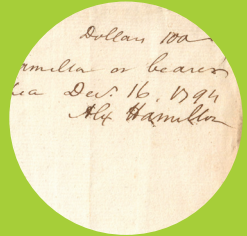 Dollars 100
amilton or bearer
Dec. 16, 1794
Alx Hamilton